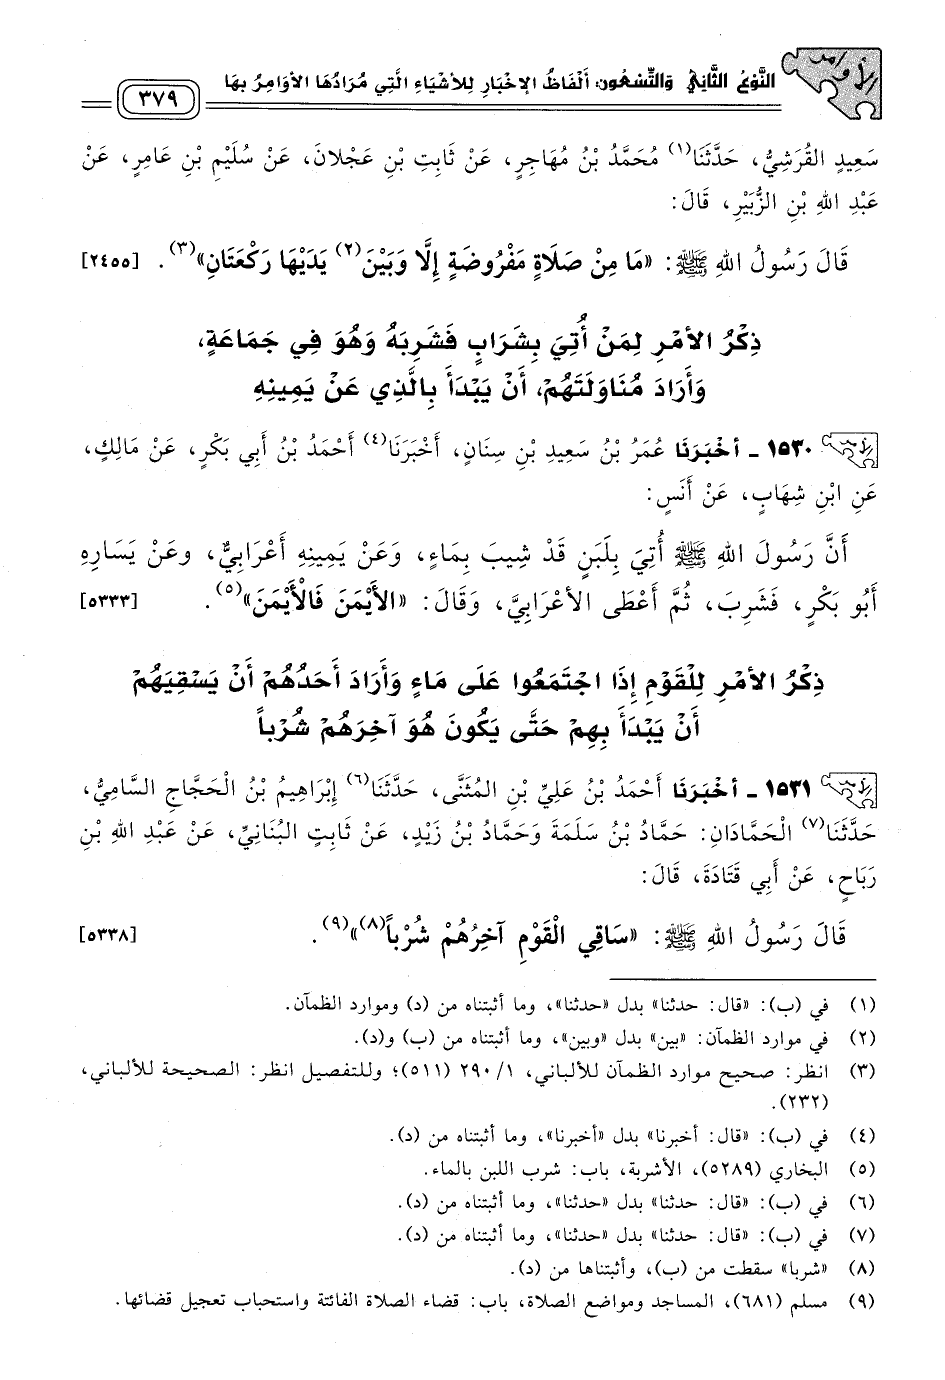 الأوامر
النَّوْعُ الثَّانِي وَالتِّسْعُونَ: أَلْفَاظُ الإِخْبَارِ لِلأَشْيَاءِ الَّتِي مُرَادُهَا الأَوَامِرُ بِهَا
٣٧٩
سَعِيدٍ القُرَشِيُّ، حَدَّثَنَا(١) مُحَمَّدُ بْنُ مُهَاجِرٍ، عَنْ ثَابِتِ بْنِ عَجْلَانَ، عَنْ سُلَيْمِ بْنِ عَامِرٍ، عَنْ
عَبْدِ اللهِ بْنِ الزُّبَيْرِ، قَالَ:
قَالَ رَسُولُ اللهِ ﷺ: «مَا مِنْ صَلَاةٍ مَفْرُوضَةٍ إِلَّا وَبَيْنَ(٢) يَدَيْهَا رَكْعَتَانِ»(٣). [٢٤٥٥]
ذِكْرُ الأَمْرِ لِمَنْ أُتِيَ بِشَرَابٍ فَشَرِبَهُ وَهُوَ فِي جَمَاعَةٍ،
وَأَرَادَ مُنَاوَلَتَهُمْ، أَنْ يَبْدَأَ بِالَّذِي عَنْ يَمِينِهِ
١٥٣٠ - أَخْبَرَنَا عُمَرُ بْنُ سَعِيدِ بْنِ سِنَانٍ، أَخْبَرَنَا(٤) أَحْمَدُ بْنُ أَبِي بَكْرٍ، عَنْ مَالِكٍ،
عَنِ ابْنِ شِهَابٍ، عَنْ أَنَسٍ:
أَنَّ رَسُولَ اللهِ ﷺ أُتِيَ بِلَبَنٍ قَدْ شِيبَ بِمَاءٍ، وَعَنْ يَمِينِهِ أَعْرَابِيٌّ، وعَنْ يَسَارِهِ
أَبُو بَكْرٍ، فَشَرِبَ، ثُمَّ أَعْطَى الأَعْرَابِيَّ، وَقَالَ: «الأَيْمَنَ فَالْأَيْمَنَ»(٥). [٥٣٣٣]
ذِكْرُ الأَمْرِ لِلْقَوْمِ إِذَا اجْتَمَعُوا عَلَى مَاءٍ وَأَرَادَ أَحَدُهُمْ أَنْ يَسْقِيَهُمْ
أَنْ يَبْدَأَ بِهِمْ حَتَّى يَكُونَ هُوَ آخِرَهُمْ شُرْباً
١٥٣١ - أَخْبَرَنَا أَحْمَدُ بْنُ عَلِيِّ بْنِ المُثَنَّى، حَدَّثَنَا(٦) إِبْرَاهِيمُ بْنُ الْحَجَّاجِ السَّامِيُّ،
حَدَّثَنَا(٧) الْحَمَّادَانِ: حَمَّادُ بْنُ سَلَمَةَ وَحَمَّادُ بْنُ زَيْدٍ، عَنْ ثَابِتٍ البُنَانِيِّ، عَنْ عَبْدِ اللهِ بْنِ
رَبَاحٍ، عَنْ أَبِي قَتَادَةَ، قَالَ:
قَالَ رَسُولُ اللهِ ﷺ: «سَاقِي الْقَوْمِ آخِرُهُمْ شُرْباً(٨)»(٩). [٥٣٣٨]
(١) في (ب): «قال: حدثنا» بدل «حدثنا»، وما أثبتناه من (د) وموارد الظمآن.
(٢) في موارد الظمآن: «بين» بدل «وبين»، وما أثبتناه من (ب) و(د).
(٣) انظر: صحيح موارد الظمآن للألباني، ١/ ٢٩٠ (٥١١)؛ وللتفصيل انظر: الصحيحة للألباني،
(٢٣٢).
(٤) في (ب): «قال: أخبرنا» بدل «أخبرنا»، وما أثبتناه من (د).
(٥) البخاري (٥٢٨٩)، الأشربة، باب: شرب اللبن بالماء.
(٦) في (ب): «قال: حدثنا» بدل «حدثنا»، وما أثبتناه من (د).
(٧) في (ب): «قال: حدثنا» بدل «حدثنا»، وما أثبتناه من (د).
(٨) «شربا» سقطت من (ب)، وأثبتناها من (د).
(٩) مسلم (٦٨١)، المساجد ومواضع الصلاة، باب: قضاء الصلاة الفائتة واستحباب تعجيل قضائها.